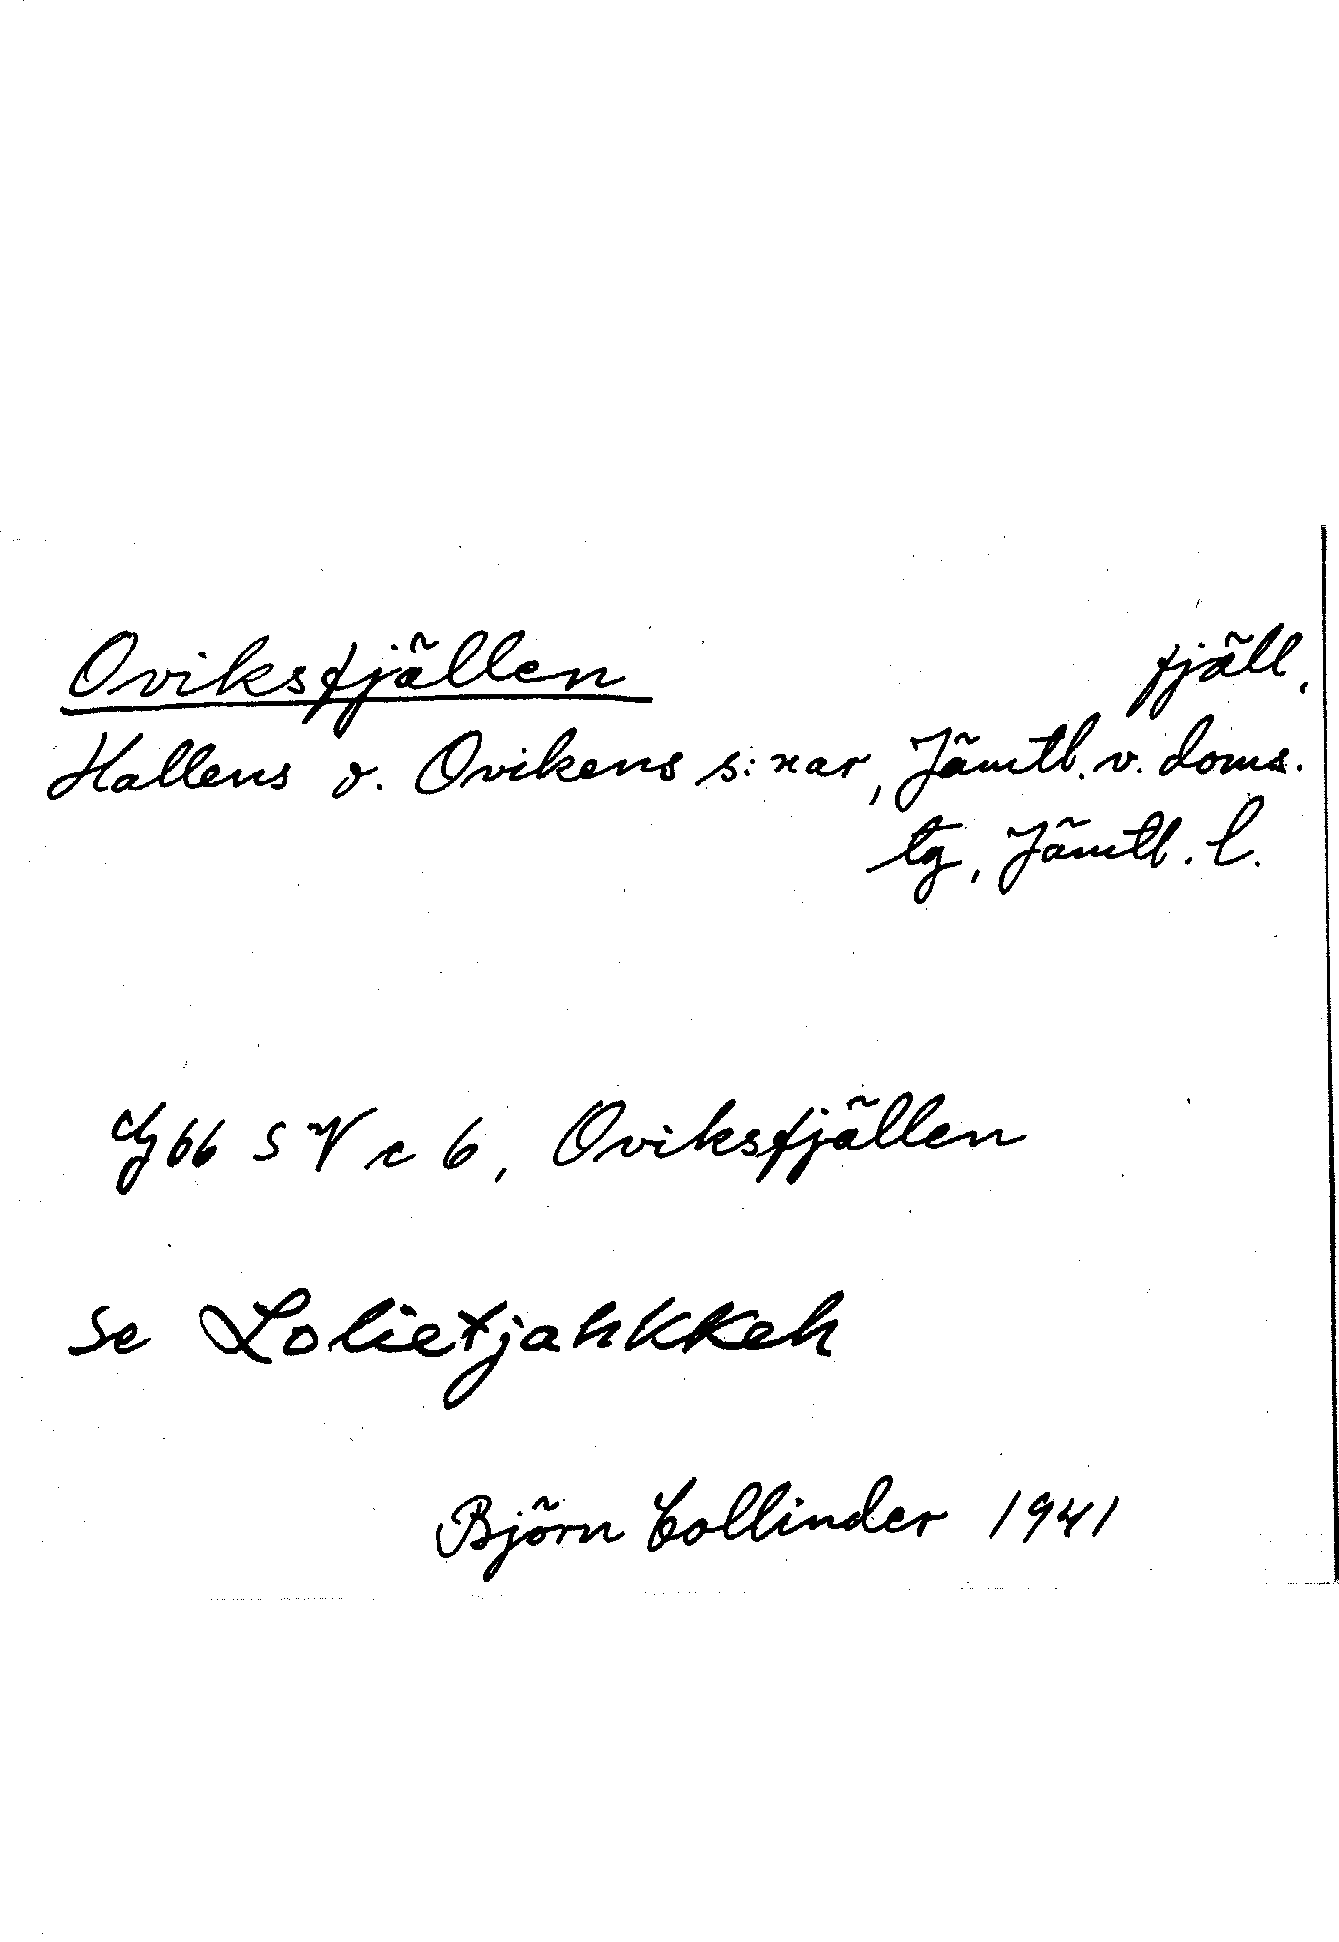 Oviksfjällen fjäll,
Hallens o. Ovikens s:nar, Jämtl. v. doms.
tg, Jämtl. l.
66 SV c 6, Oviksfjällen
se Lolietjahkkeh
Björn Collinder 1941